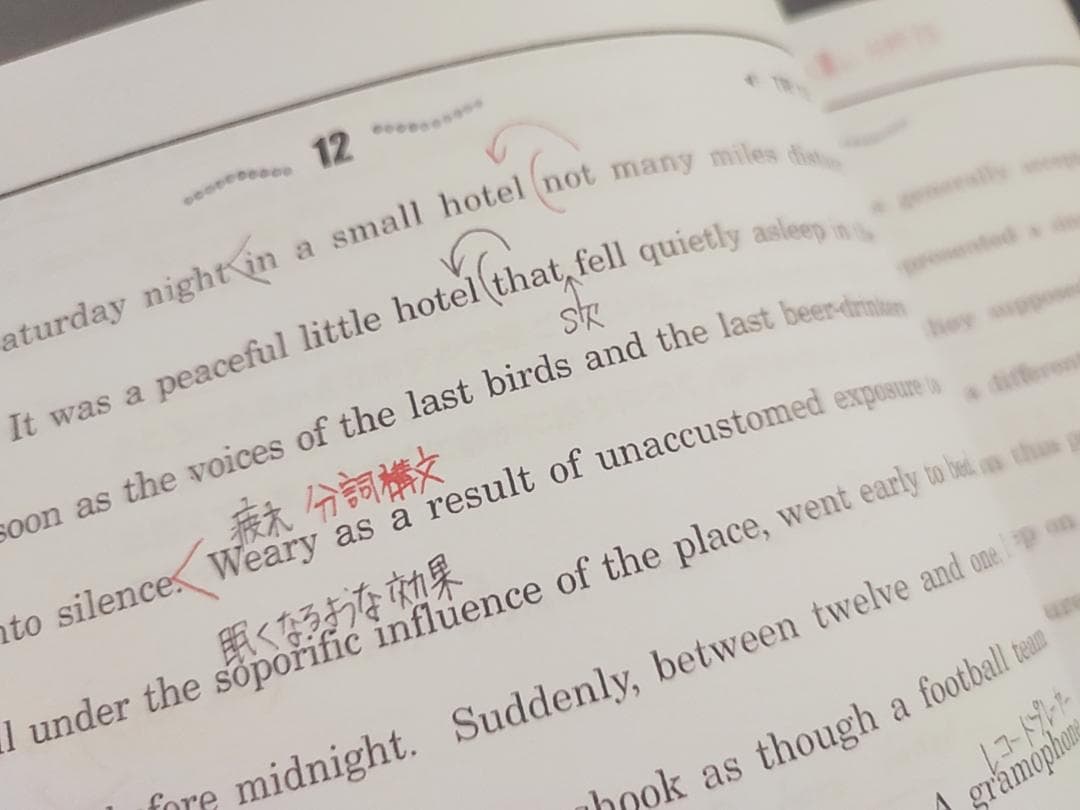 12
aturday night in a small hotel (not many miles
It was a peaceful little hotel (that fell quietly asleep in
S欠
soon as the voices of the last birds and the last beer-drinkers
疲れ 分詞構文
nto silence. Weary as a result of unaccustomed exposure to
眠くなるような効果
ll under the soporific influence of the place, went early to bed
fore midnight. Suddenly, between twelve and one
shook as though a football team
レコードプレーヤー
A gramophone
generally
presented a
they supposed
a different